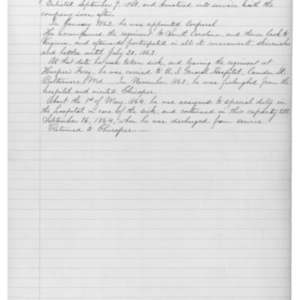 Enlisted September 9. 1861. and mustered into service with the
company soon after.
In January 1862. he was appointed Corporal.
He accompanied the regiment to North Carolina and then back to
Virginia, and afterwards participated in all its movements, skirmishes
and battles until July 20. 1863.
At this date he was taken sick, and leaving the regiment at
Harpers Ferry, he was carried to U. S. General Hospital, Camden St.
Baltimore, Md. In November 1863. he was furloughed from the
hospital and visited Chicopee.
About the 1st of May, 1864, he was assigned to special duty in
the hospital in care of the sick, and continued in this capacity till
September 26, 1864, when he was discharged from service.
Returned to Chicopee.